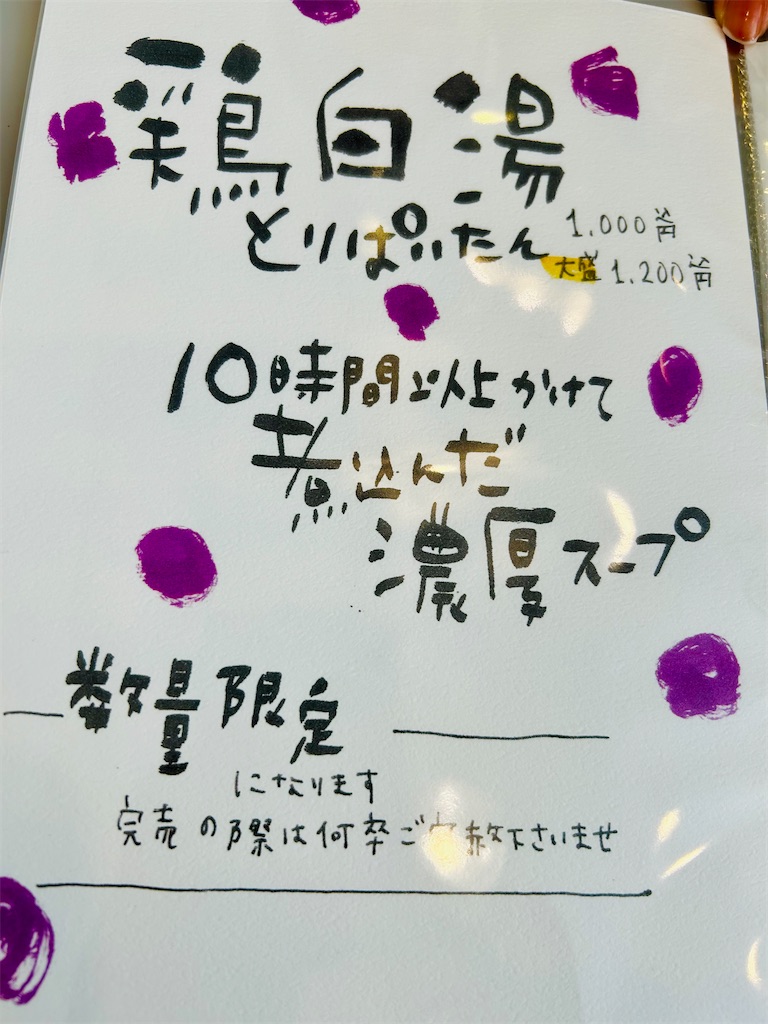 鶏白湯
とりぱいたん 1.000円
大盛 1.200円
10時間以上かけて
煮込んだ
濃厚スープ
数量限定
になります
完売の際は何卒ご容赦下さいませ